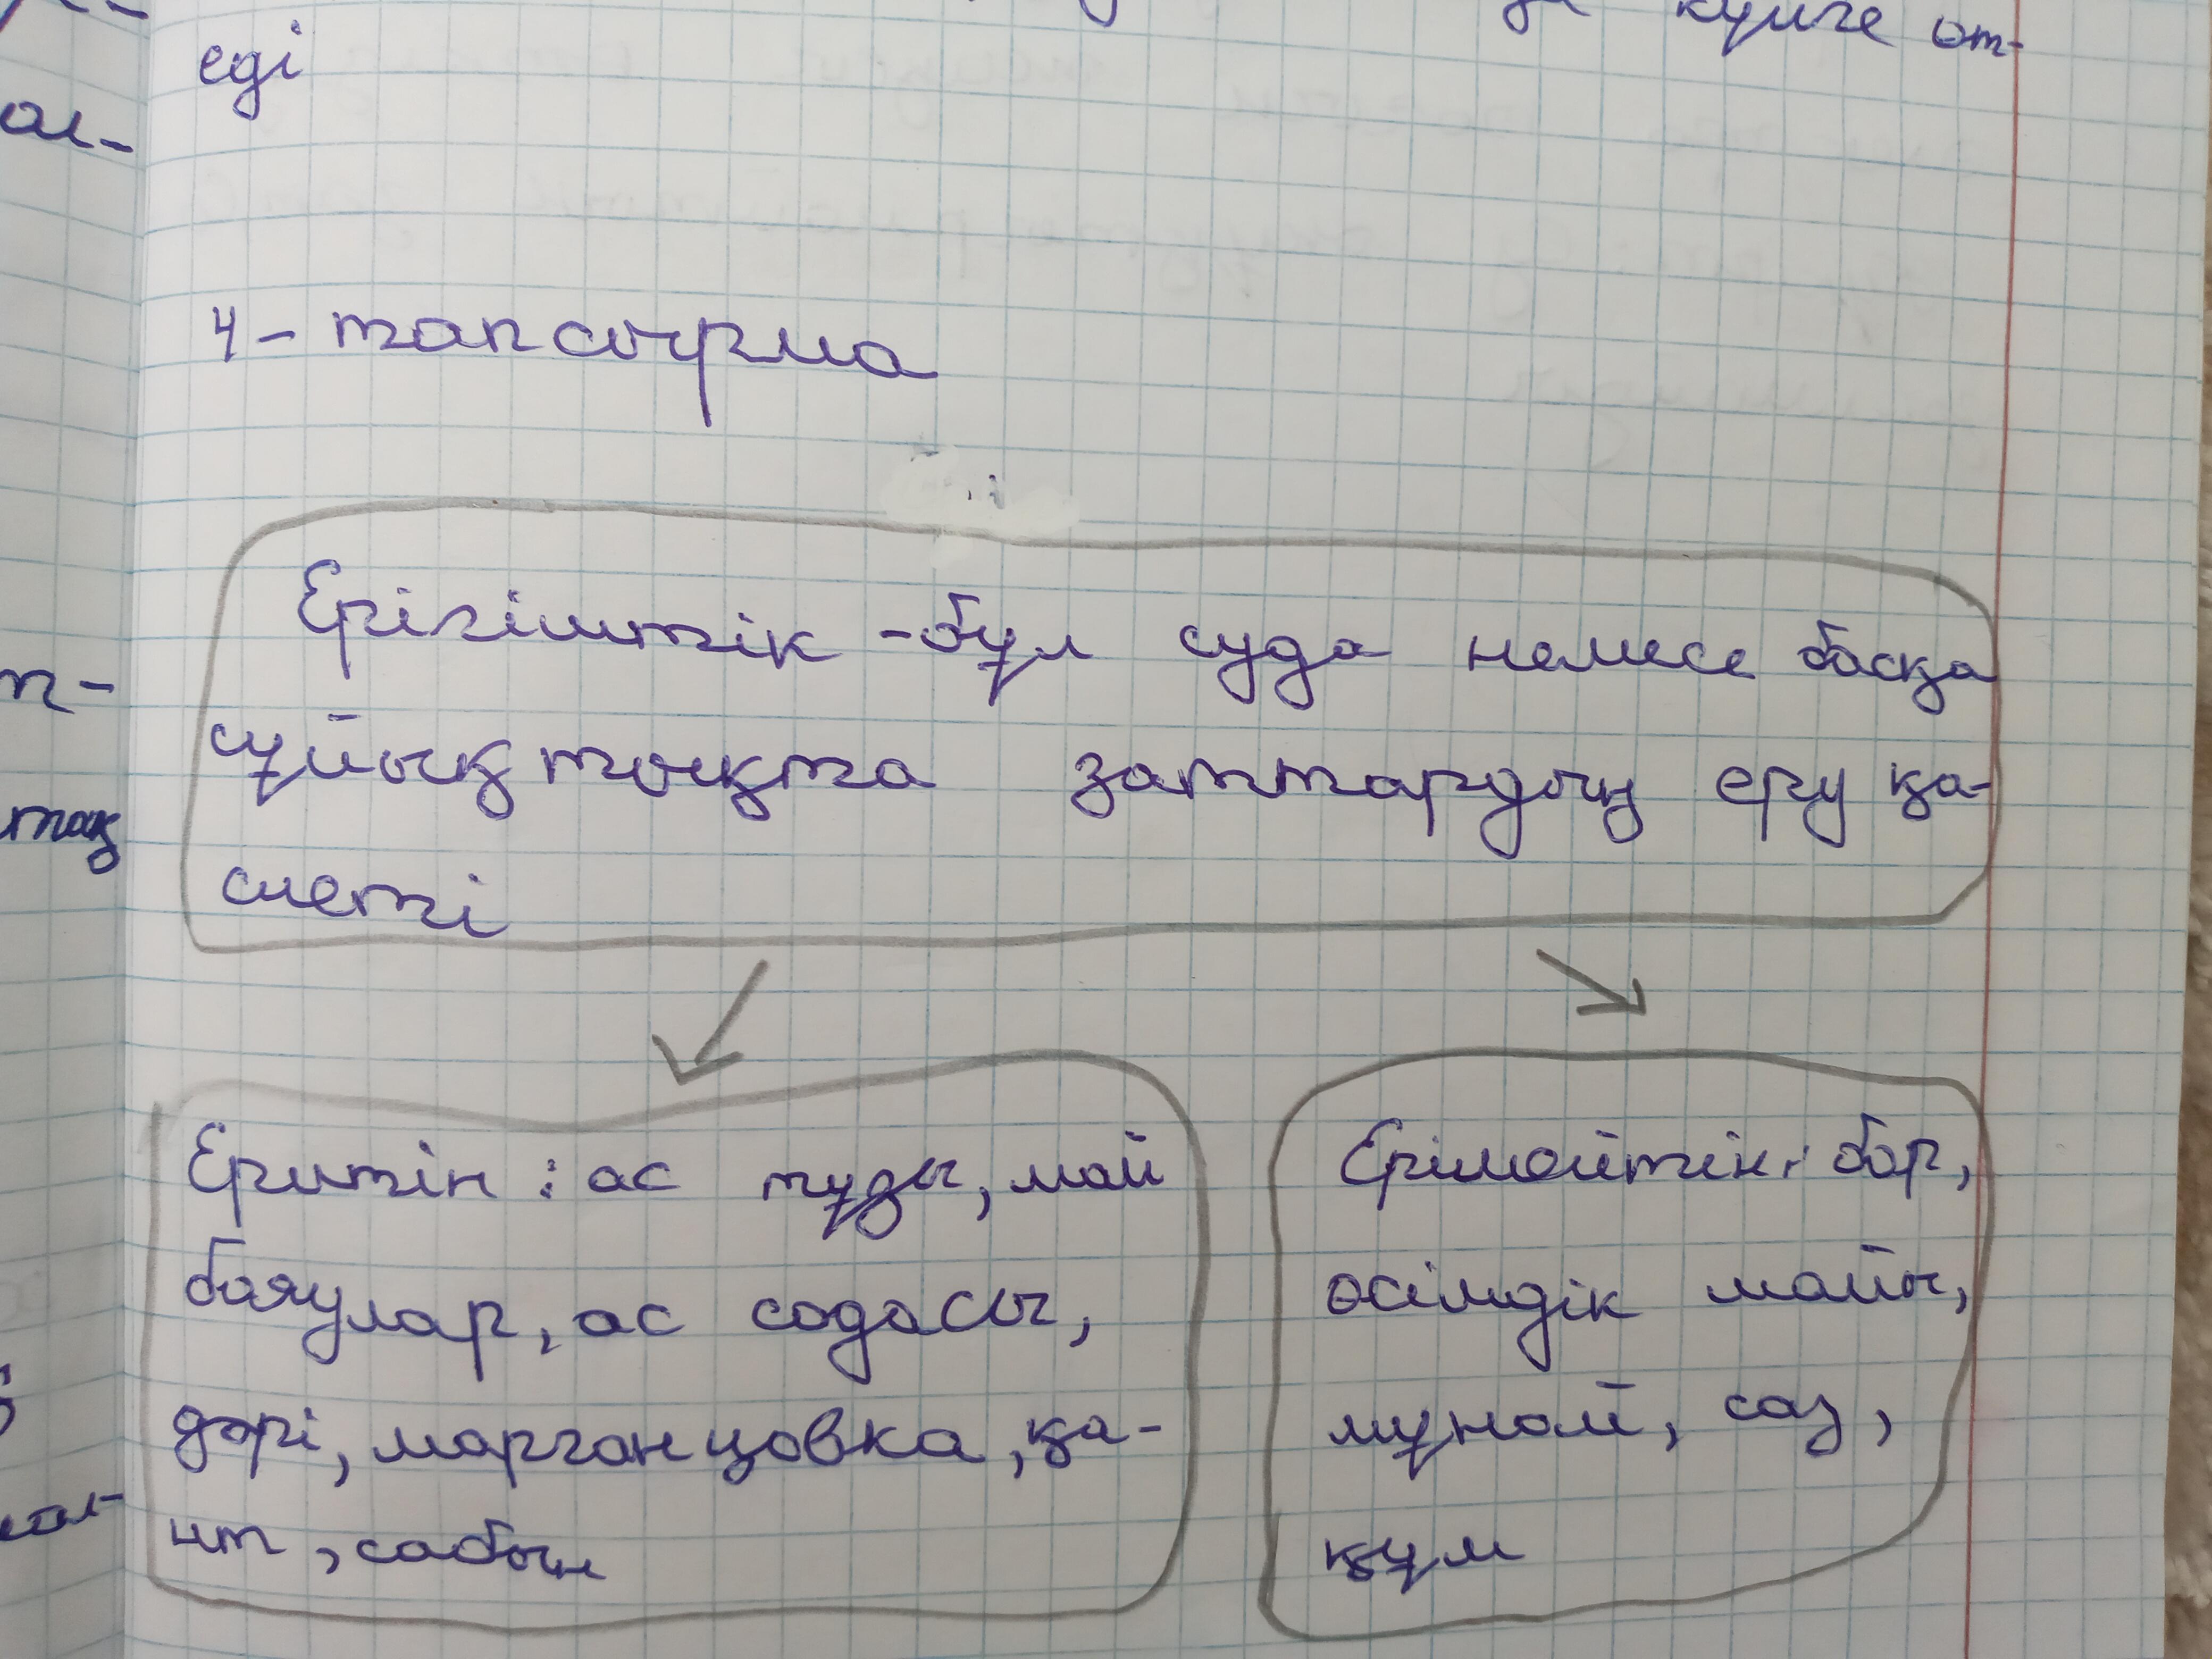 күйге өт-
еді
4-тапсырма
Ерігіштік -бұл суда немесе басқа
сұйықтықта заттардың еру қа-
сиеті
Еритін : ас тұзы, май
бояулар, ас содасы,
дәрі, марганцовка, қа-
нт, сабын
Ерімейтін: бор,
өсімдік майы,
мұнай, саз,
құм